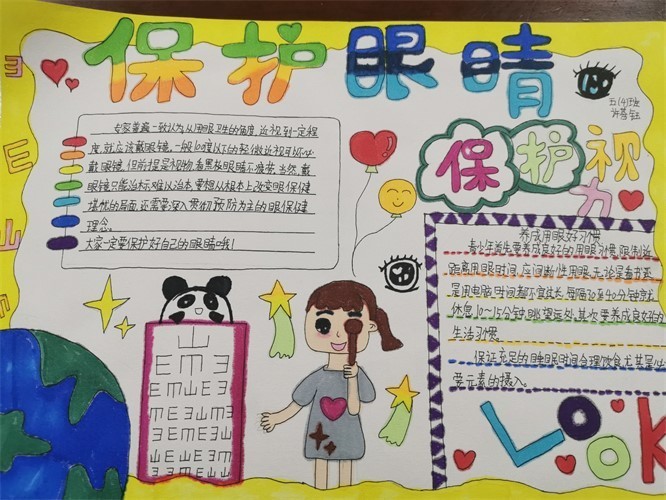 保护眼睛
五(4)班
保护视力
专家普遍一致认为从用眼卫生的角度,近视到一定程
度,就应该戴眼镜,一般300度以下的轻微近视可以不必
戴眼镜,但前提是视物,看黑板眼睛不疲劳,当然,戴
眼镜只能治标,难以治本,要想从根本上改变眼保健
堪忧的局面,还需要深入贯彻预防为主的眼保健
理念。
大家一定要保护好自己的眼睛哦!
养成用眼好习惯
青少年首先要养成良好的用眼习惯,限制近
距离用眼时间,应间断性用眼,无论是看书还
是用电脑,时间都不宜过长,每隔30至40分钟就
休息10～15分钟,眺望远处,其次要养成良好的
生活习惯。
保证充足的睡眠时间,合理饮食,尤其是
要元素的摄入。
LOOK